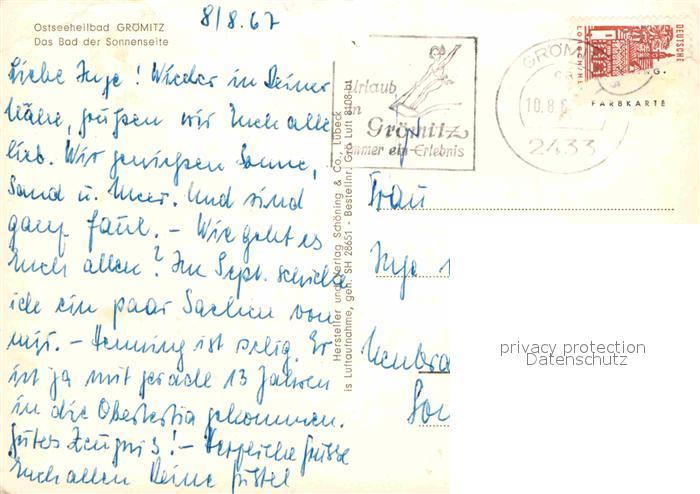 8/8.67
Ostseeheilbad GRÖMITZ
Das Bad der Sonnenseite
Liebe Inge! Wieder in Deiner
Nähe, grüßen wir Euch alle
lieb. Wir genießen Sonne,
Sand u. Meer. Und sind
ganz faul. – Wie geht es
Euch allen? Im Sept. schicke
ich ein paar Sachen von
mir. – Henning ist selig. Er
ist ja mit gerade 13 Jahren
in die Obertertia gekommen.
Gutes Zeugnis! – Herzliche Grüsse
Euch allen Deine Gustel
Hersteller und Verlag Schöning & Co., Lübeck
is Luftaufnahme, geh. SH 28651 - Bestellnr. Grö Luft 8108-b1
Urlaub
in
Grömitz
immer ein Erlebnis
GRÖM
10.8.6
2433
DEUTSCHE
FARBKARTE
Frau
Inge
privacy protection
Datenschutz